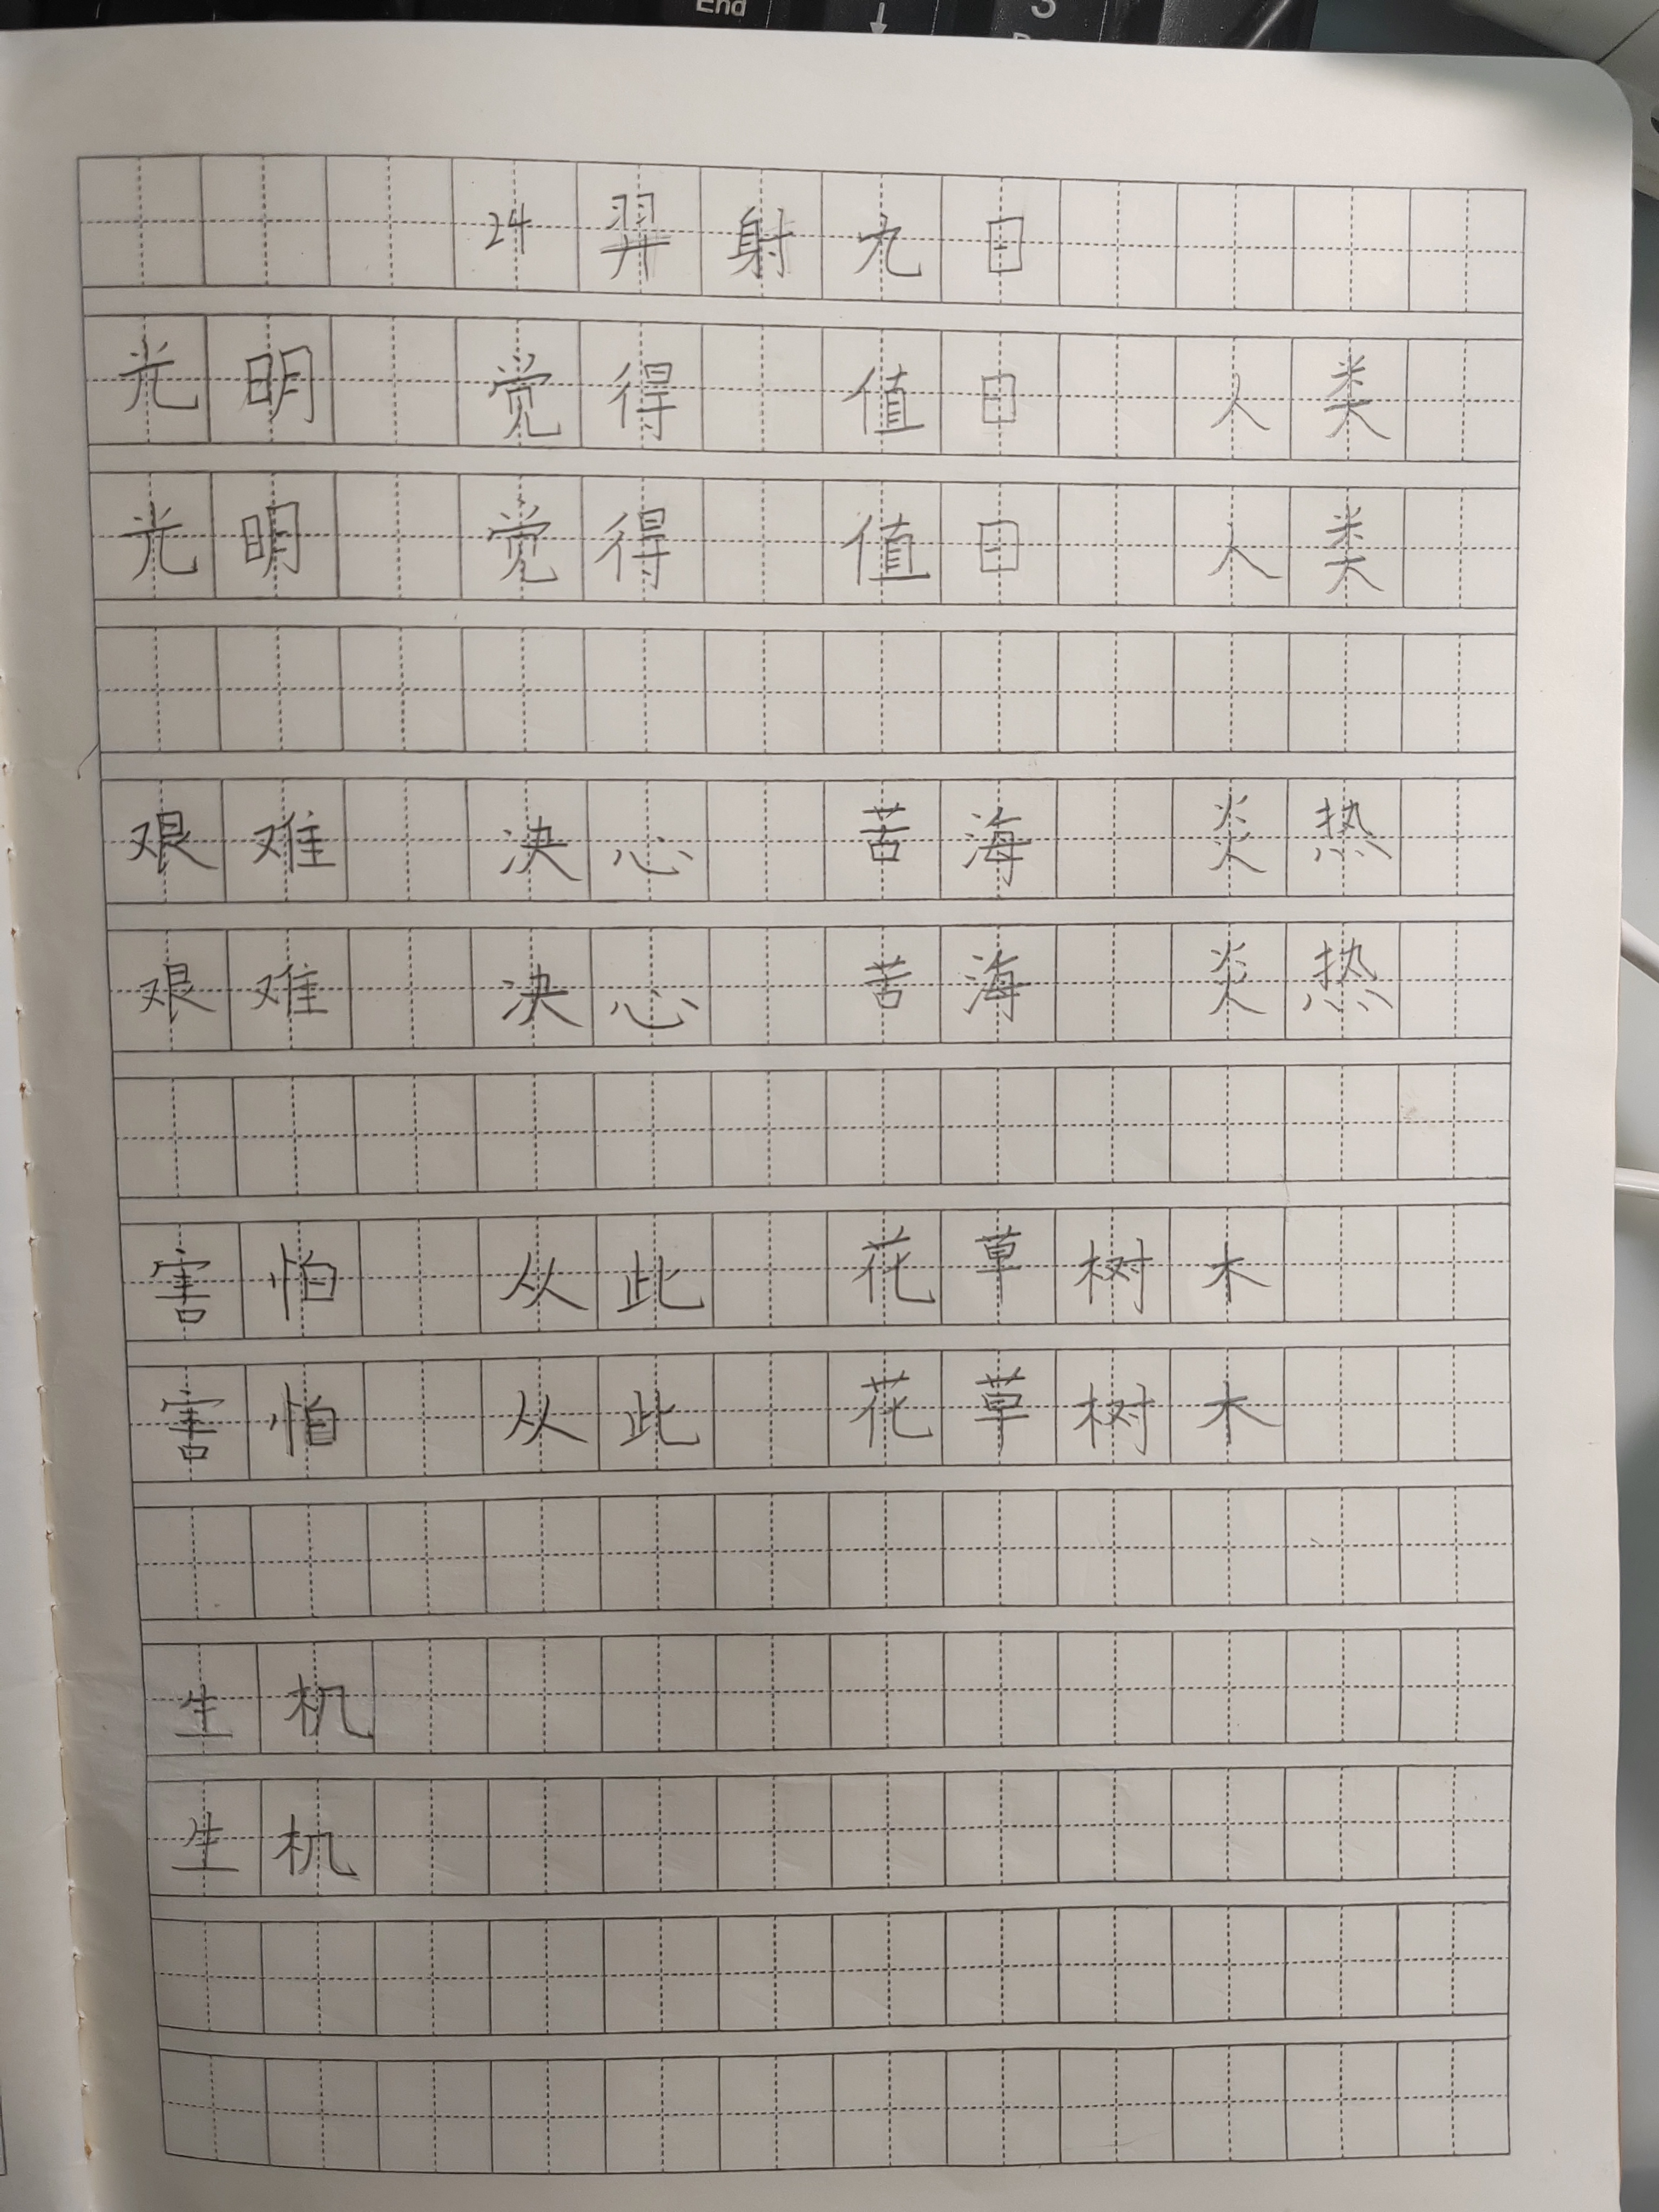 End ↓ 3
24 羿射九日
光明 觉得 值日 人类
光明 觉得 值日 人类
艰难 决心 苦海 炎热
艰难 决心 苦海 炎热
害怕 从此 花草树木
害怕 从此 花草树木
生机
生机